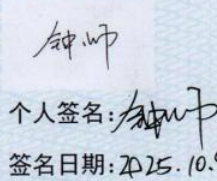 钟帅
个人签名:钟帅
签名日期:2025.10.